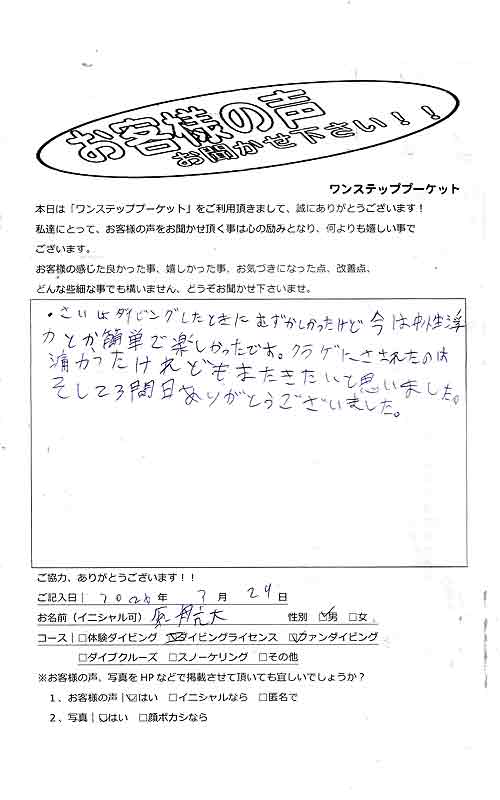 お客様の声
お聞かせ下さい！！
ワンステッププーケット
本日は「ワンステッププーケット」をご利用頂きまして、誠にありがとうございます！
私達にとって、お客様の声をお聞かせ頂く事は心の励みとなり、何よりも嬉しい事で
ございます。
お客様の感じた良かった事、嬉しかった事、お気づきになった点、改善点、
どんな些細な事でも構いません、どうぞお聞かせ下さいませ。
・さいしょダイビングしたときにむずかしかったけど今は中性浮
力とか簡単で楽しかったです。クラゲにさされたのは
痛かったけれどもまたきたいと思いました。
そして3間日ありがとうございました。
ご協力、ありがとうございます！！
ご記入日 年 7 月 24 日
お名前（イニシャル可） 性別 ☑男 □女
コース | □体験ダイビング ☑ダイビングライセンス ☑ファンダイビング
□ダイブクルーズ □スノーケリング □その他
※お客様の声、写真をHPなどで掲載させて頂いても宜しいでしょうか？
１、お客様の声 | ☑はい □イニシャルなら □匿名で
２、写真 | ☑はい □顔ボカシなら